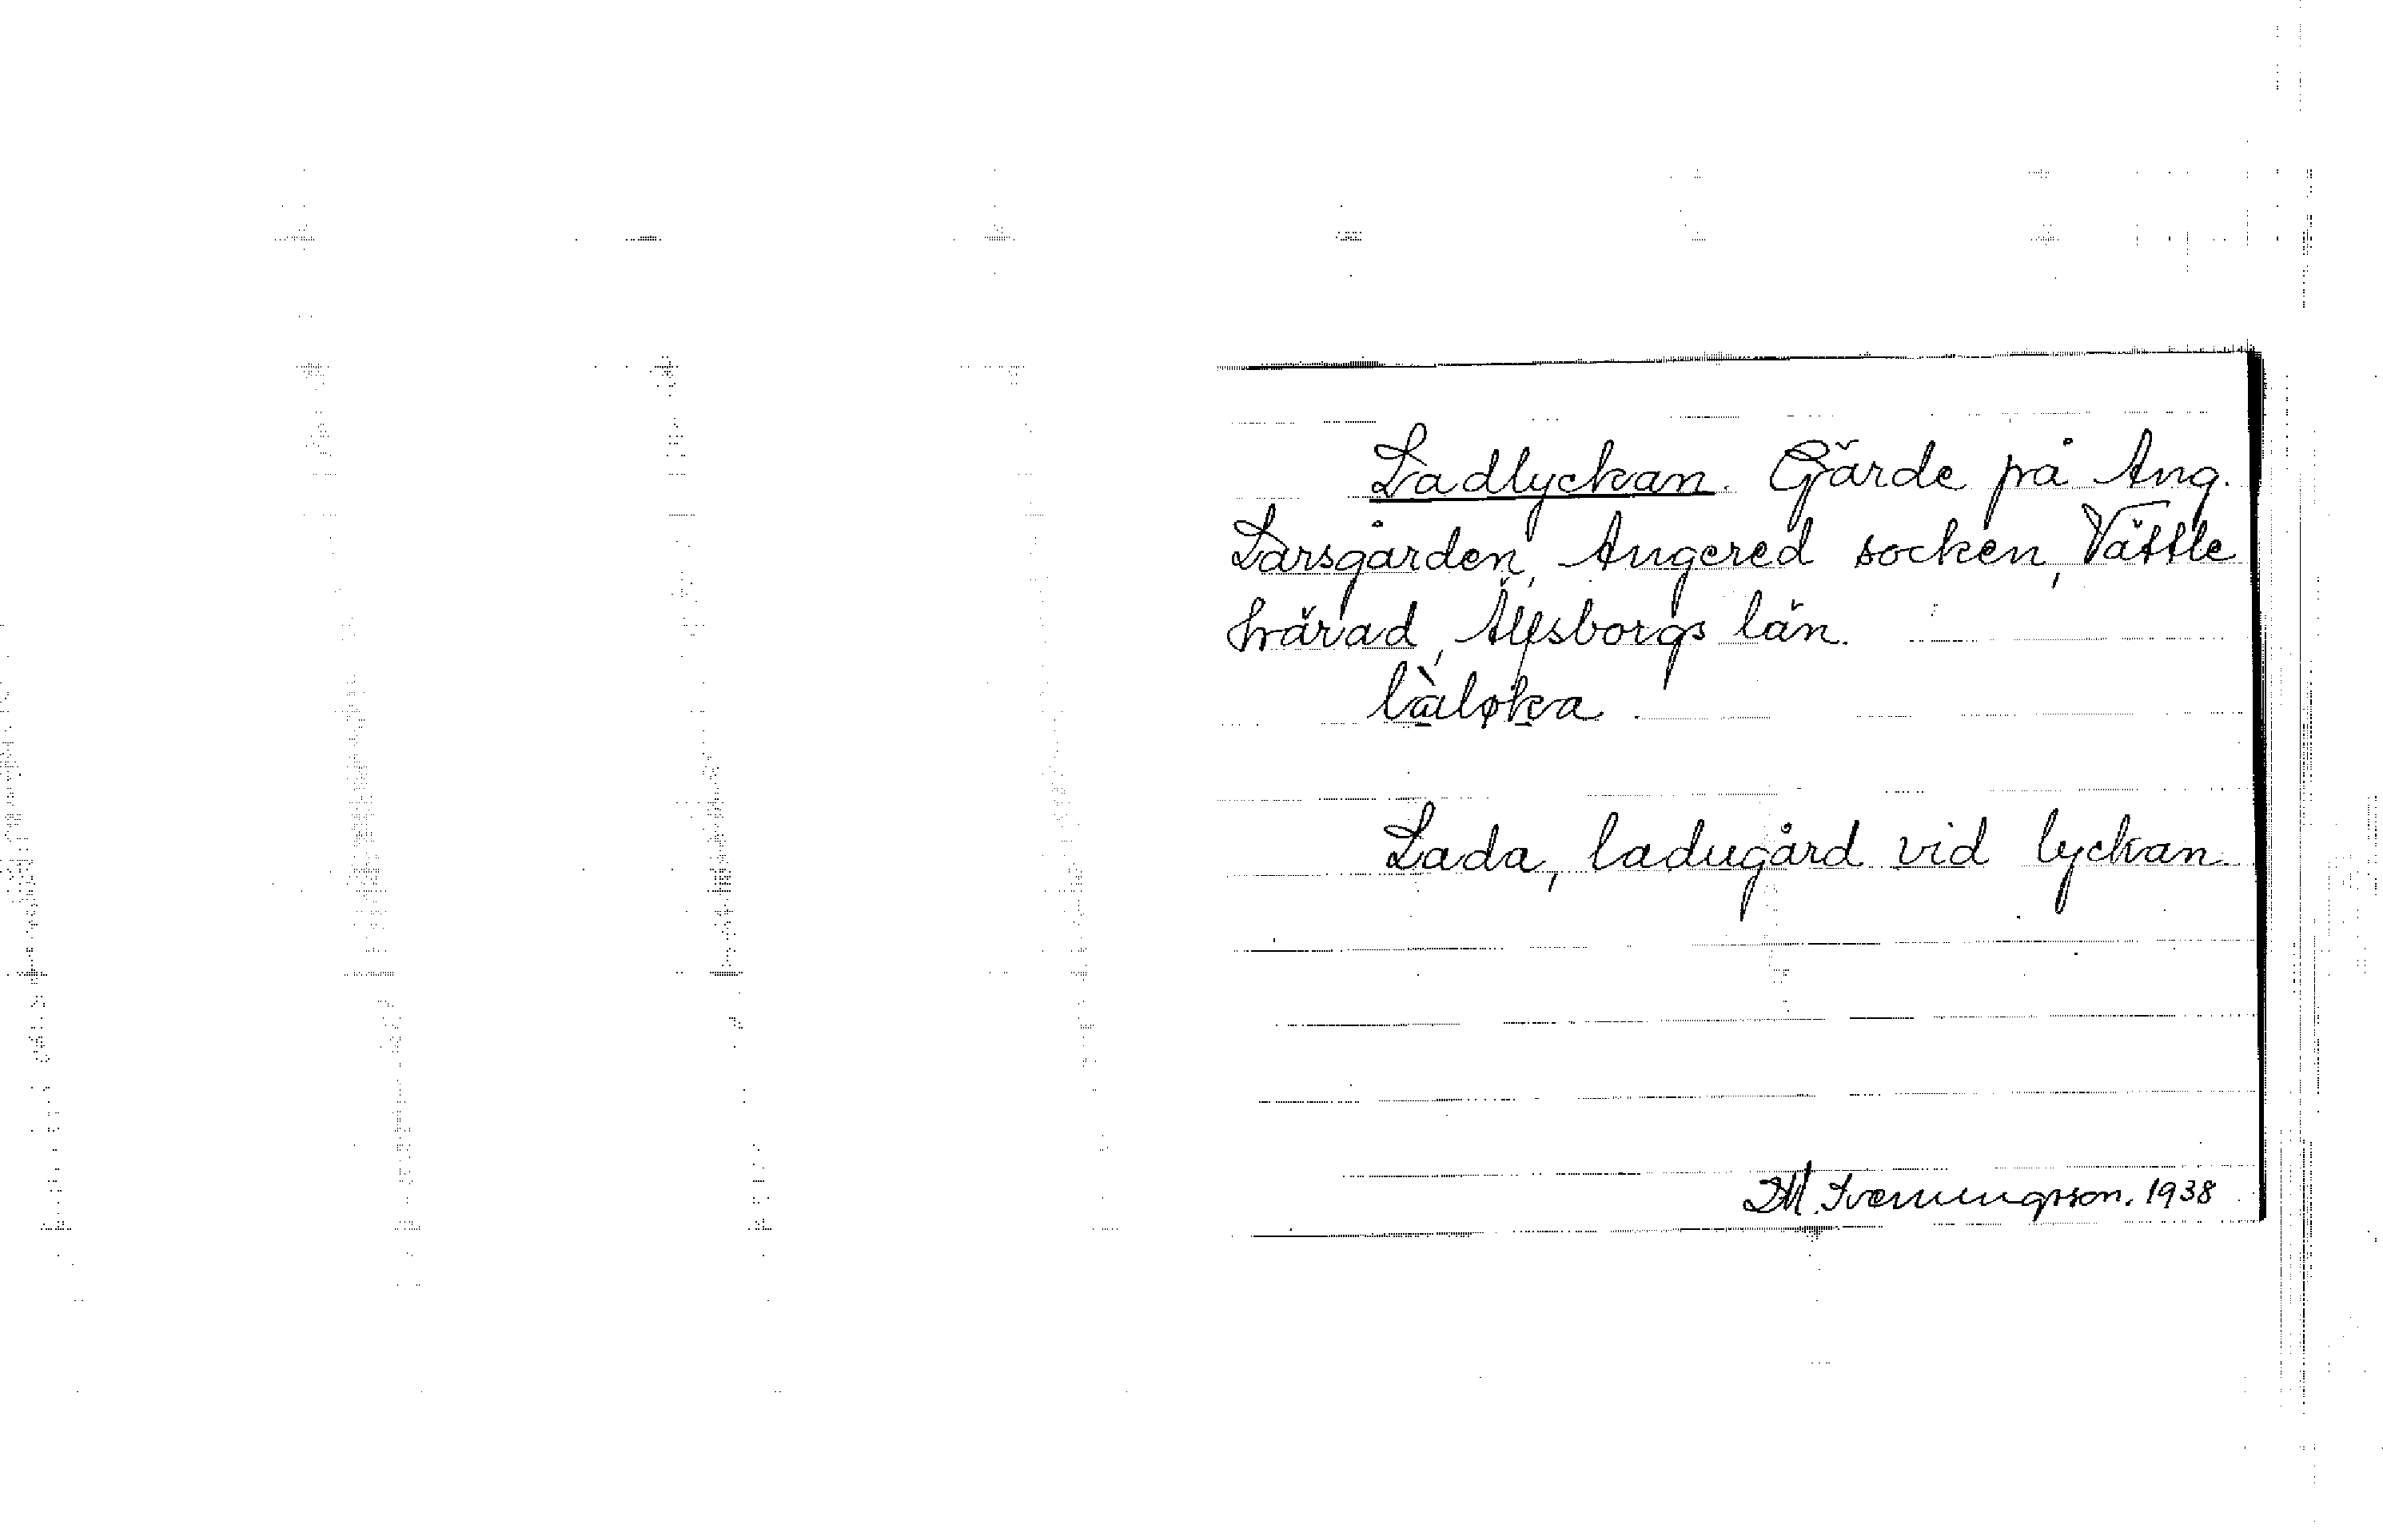 Ladlyckan. Gärde på Ang.
Larsgården, Angered socken, Vättle
härad, Älfsborgs län.
Lada, ladugård vid lyckan
DM. Svenningsson. 1938